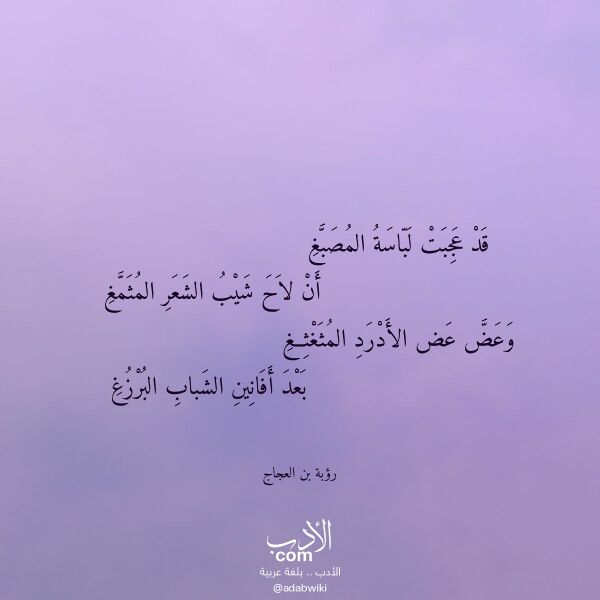 قَدْ عَجِبَتْ لَبّاسَةُ المُصَبَّغِ
أَنْ لاَحَ شَيْبُ الشَعَرِ المُثَمَّغِ
وَعَضَّ عَض الأَدْرَدِ المُثَغْثِــغِ
بَعْدَ أَفَانِينِ الشَبابِ البُرْزُغِ
رؤبة بن العجاج
الأدب
com
الأدب .. بلغة عربية
@adabwiki